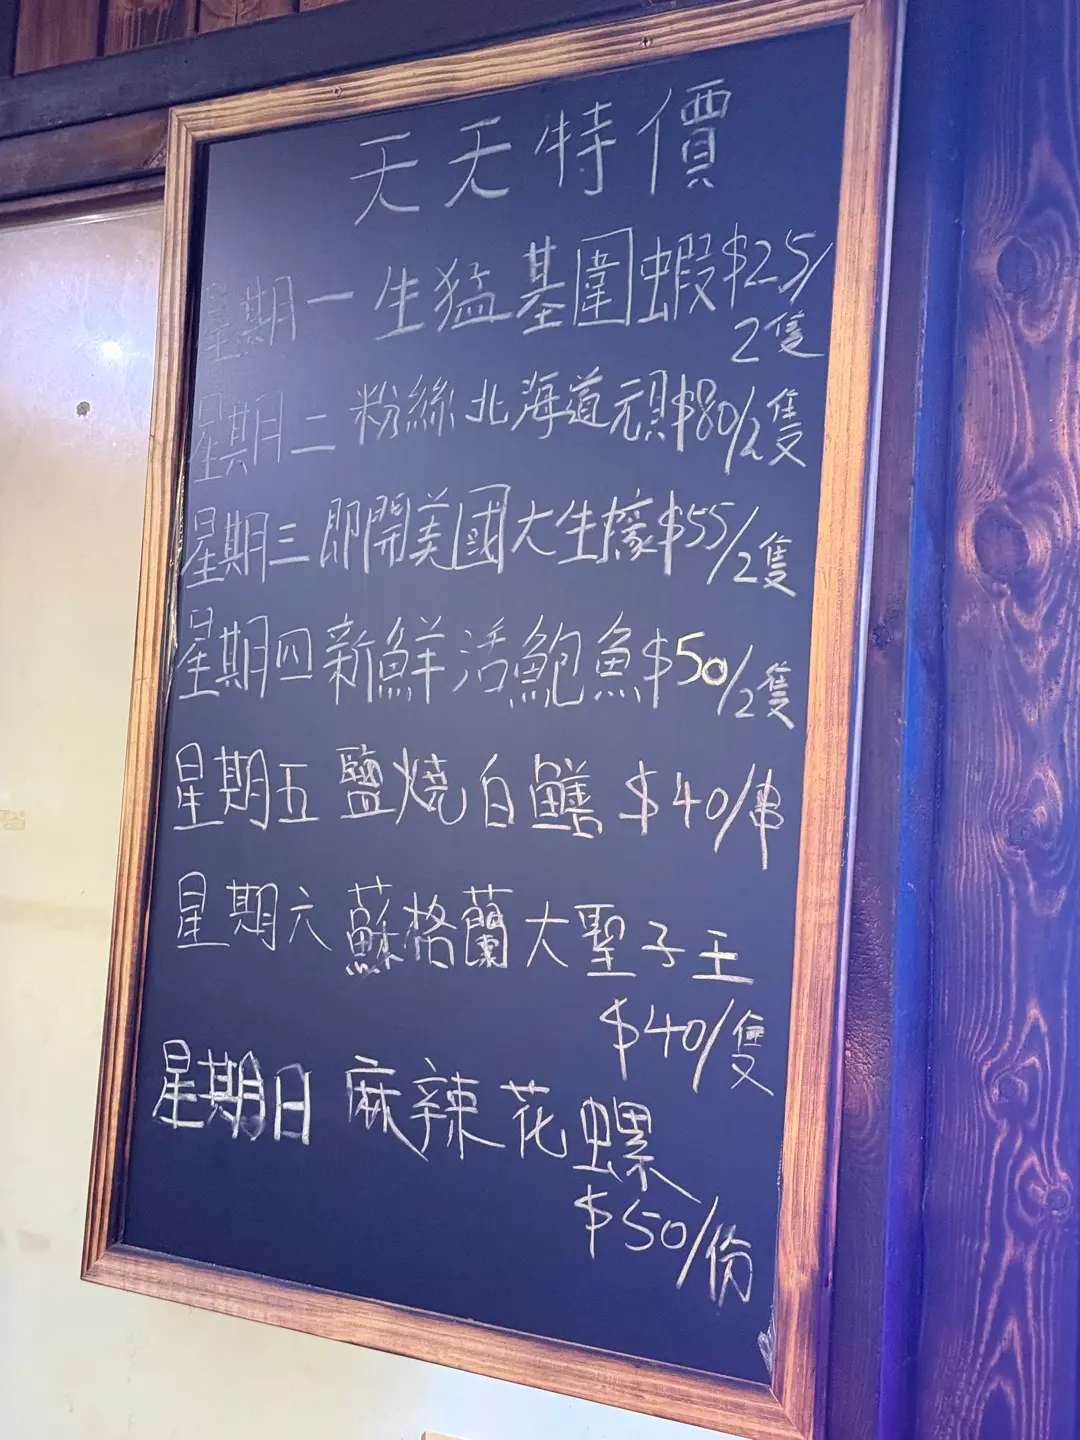 天天特價
星期一 生猛基圍蝦$25/
2隻
星期二 粉絲北海道元貝$80/2隻
星期三 即開美國大生㩢$55/2隻
星期四 新鮮活鮑魚$50/2隻
星期五 鹽燒白鱔 $40/串
星期六 蘇格蘭大聖子王
$40/隻
星期日 麻辣花螺
$50/份